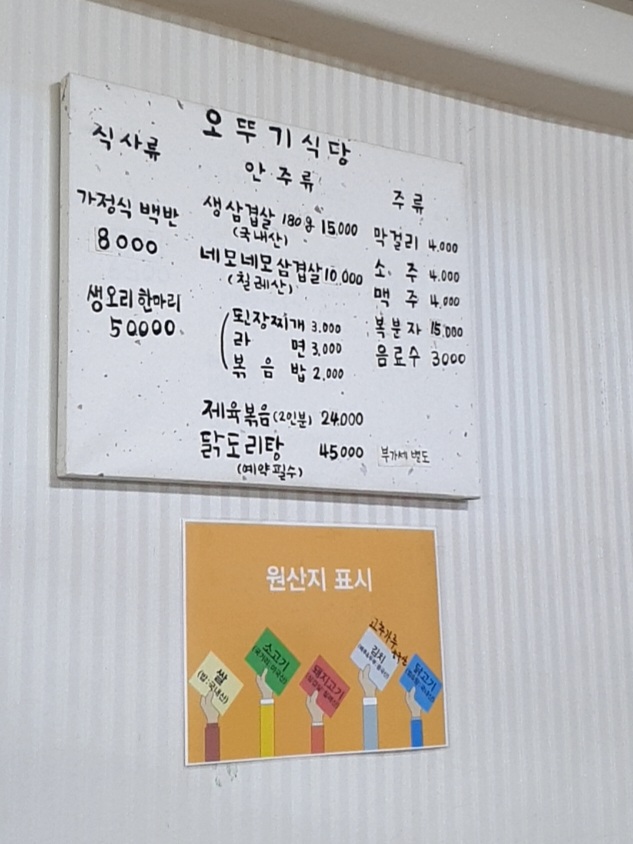 오뚜기식당
직사류
가정식 백반
8000
생오리 한마리
50000
안주류
생삼겹살 180g 15,000
(국내산)
네모네모삼겹살 10,000
(칠레산)
된장찌개 3.000
라면 3,000
볶음밥 2,000
제육볶음(2인분) 24000
닭도리탕 45000
(예약필수)
주류
막걸리 4.000
소주 4,000
맥주 4,000
복분자 15,000
음료수 3000
부가세 별도
원산지 표시
쌀
(밥:국내산)
소고기
돼지고기
고추가루
김치
닭고기